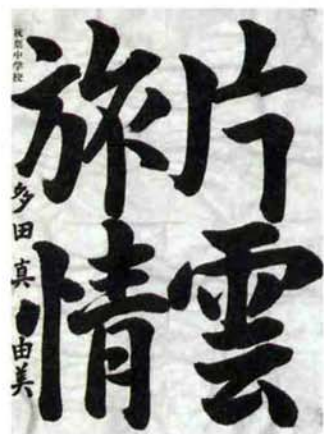 片雲
旅情
秋葉中学校
多田真由美